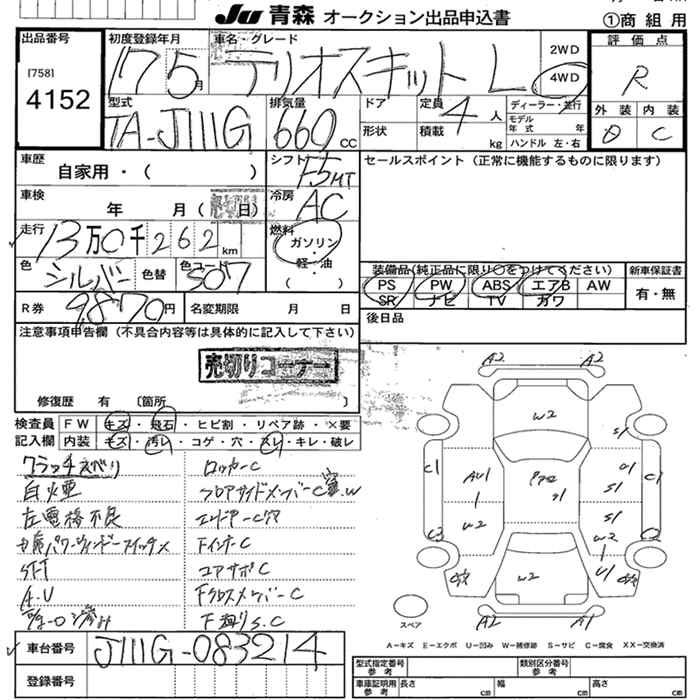 Ju 青森 オークション出品申込書
①商 組 用
出品番号
[758]
4152
初度登録年月
17 5月
車名・グレード
テリオスキット L
2WD
4WD
評 価 点
R
型式
TA-J111G
排気量
660 cc
ドア
形状
定員 4 人
積載 kg
ディーラー・並行
モデル
年 式 年
ハンドル 左・右
外 装
内 装
C
車歴
自家用・( )
シフト
F5MT
セールスポイント (正常に機能するものに限ります)
車検
年 月( 日)
冷房
AC
走行
13万0千262km
燃料
ガソリン
軽・油
( )
色
シルバー
色替
色コード
S07
装備品(純正品に限り○をつけてください)
PS PW ABS エアB AW
SR ナビ TV カワ
新車保証書
有・無
R券
9870円
名変期限 月 日
後日品
注意事項申告欄 (不具合内容等は具体的に記入して下さい)
売切りコーナー
修復歴 有 〔箇所 〕
検査員
記入欄
FW キズ・飛石・ヒビ割・リペア跡・×要
内装 キズ・汚レ・コゲ・穴・スレ・キレ・破レ
クラッチスベリ
白火亜
左電格不良
S11
A・U
ロッカーC
フロアサイドメンバーC W
FインナーC
コアサポC
FクロスメンバーC
F廻りS.C
A2
A1
W2
S1
C1
AU1
1
U1
C1
W2
S1
C3
W2
1
C2
U1
W2
A2
A1
スペア
A-キズ E-エクボ U-凹み W-補修跡 S-サビ C-腐食 XX-交換済
車台番号
J111G-083214
登録番号
型式指定番号
参考
類別区分番号
車庫証明用
参考
長さ cm
幅 cm
高さ cm